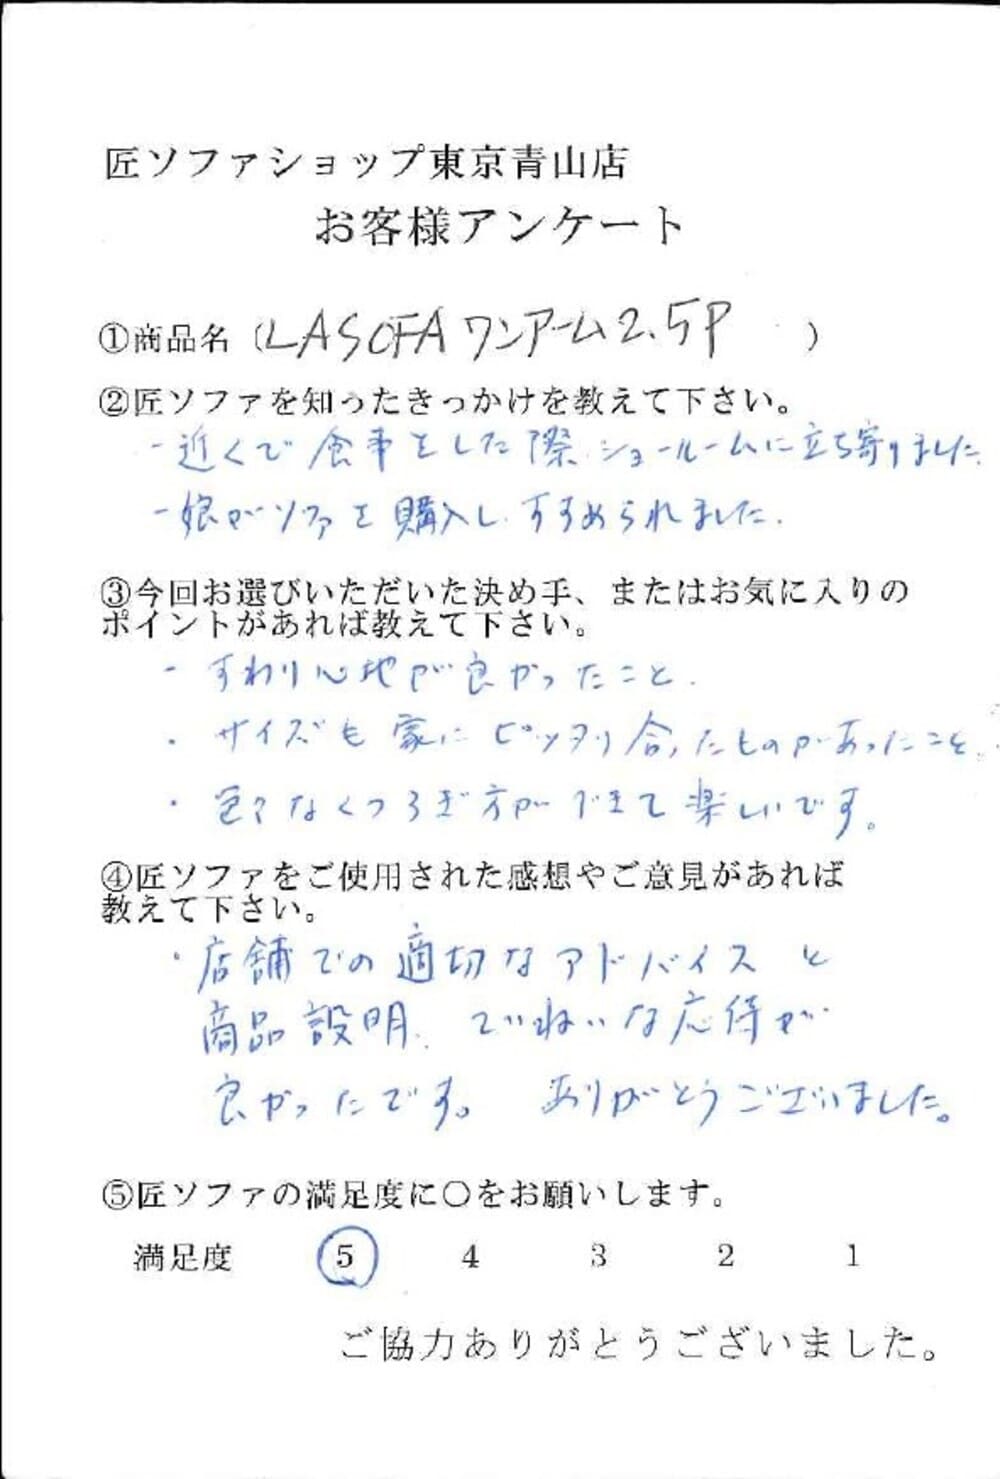 匠ソファショップ東京青山店
お客様アンケート
①商品名（LASOFA ワンアーム2.5P ）
②匠ソファを知ったきっかけを教えて下さい。
- 近くで食事をした際、ショールームに立ち寄りました。
- 娘がソファを購入し、すすめられました。
③今回お選びいただいた決め手、またはお気に入りの
ポイントがあれば教えて下さい。
- すわり心地が良かったこと.
・サイズも家にピッタリ合ったものがあったこと。
・色々なくつろぎ方ができて楽しいです。
④匠ソファをご使用された感想やご意見があれば
教えて下さい。
・店舗での適切なアドバイスと
商品説明、ていねいな応待が
良かったです。 ありがとうございました。
⑤匠ソファの満足度に〇をお願いします。
満足度 5 4 3 2 1
ご協力ありがとうございました。